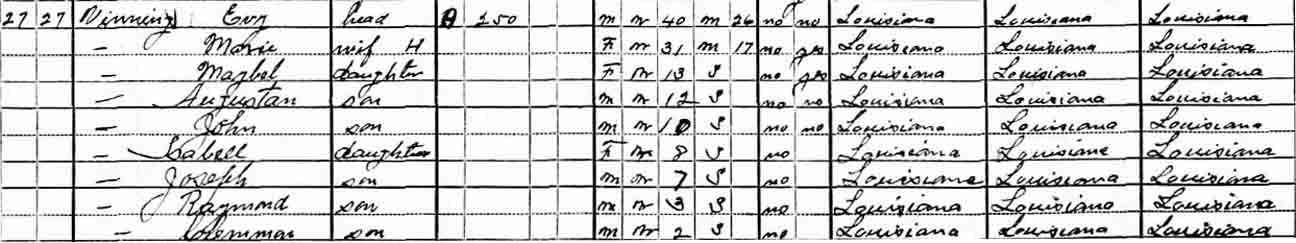 27 27 Vinning Evy head 250 m 40 m 26 no no Louisiana Louisiana Louisiana
— Marie wif H F 31 m 17 no yes Louisiana Louisiana Louisiana
— Mazbel daughter F 13 S no yes Louisiana Louisiana Louisiana
— Augustan son m 12 S no no Louisiana Louisiana Louisiana
— John son m 10 S no no Louisiana Louisiana Louisiana
— Isabell daughter F 8 S no Louisiana Louisiana Louisiana
— Joseph son m 7 S no Louisiana Louisiana Louisiana
— Raymond son m 3 S no Louisiana Louisiana Louisiana
— son m 2 S no Louisiana Louisiana Louisiana